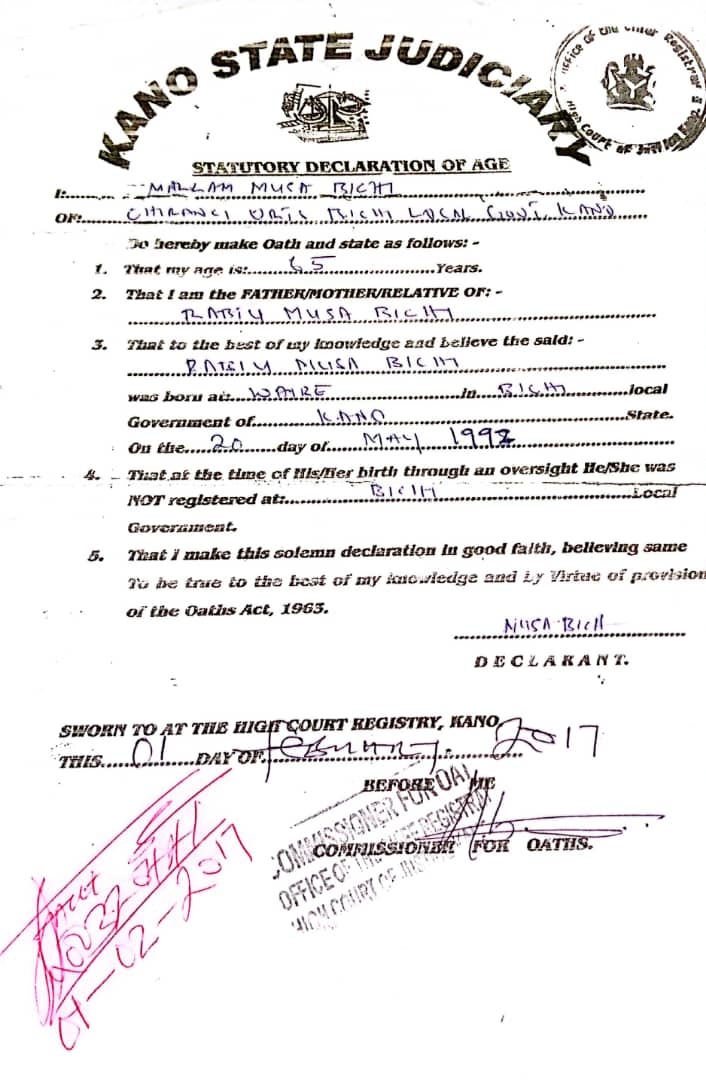 KANO STATE JUDICIARY
Office of the Chief Registrar
High Court of Justice Kano
STATUTORY DECLARATION OF AGE
I:......... MALLAM MUSA BICHI .........
OF:......... CHIRANCI QRTS BICHI LOCAL GOVT, KANO.........
Do hereby make Oath and state as follows: -
1. That my age is:.........65.........Years.
2. That I am the FATHER/MOTHER/RELATIVE OF: -
.........RABIU MUSA BICHI.........
3. That to the best of my knowledge and believe the said: -
.........RABIU MUSA BICHI.........
was born at:...WAIRE.........in...BICHI.........local
Government of.........KANO.........State.
On the.....20......day of......MAY 1992.........
4. That at the time of His/Her birth through an oversight He/She was
NOT registered at:.........BICHI.........Local
Government.
5. That I make this solemn declaration in good faith, believing same
To be true to the best of my knowledge and by Virtue of provision
of the Oaths Act, 1963.
MUSA BICHI
DECLARANT.
SWORN TO AT THE HIGH COURT REGISTRY, KANO
THIS......01......DAY OF...FEBRUARY......2017
BEFORE ME
COMMISSIONER FOR OATHS.
COMMISSIONER FOR OA
OFFICE OF THE CHIEF REGISTRAR
HIGH COURT OF JUSTICE
01-02-2017